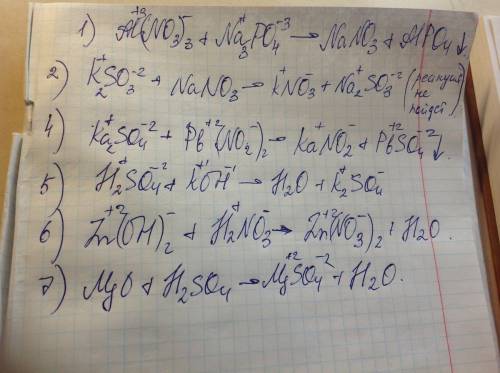 1) Al⁺³(NO₃)₃⁻ + Na₃⁺PO₄⁻³ → NaNO₃ + AlPO₄↓.
2) K₂⁺SO₃⁻² + NaNO₃ → K⁺NO₃⁻ + Na₂⁺SO₃⁻² (реакция не пойдет)
4) Ka₂⁺SO₄⁻² + Pb⁺²(NO₂⁻)₂ → Ka⁺NO₂⁻ + Pb⁺²SO₄⁻²↓.
5) H₂⁺SO₄⁻² + K⁺¹OH⁻¹ → H₂O + K₂⁺SO₄
6) Zn⁺²(OH)₂⁻ + H₂⁺NO₃⁻ → Zn⁺²(NO₃⁻)₂ + H₂O.
7) MgO + H₂SO₄ → Mg⁺²SO₄⁻² + H₂O.